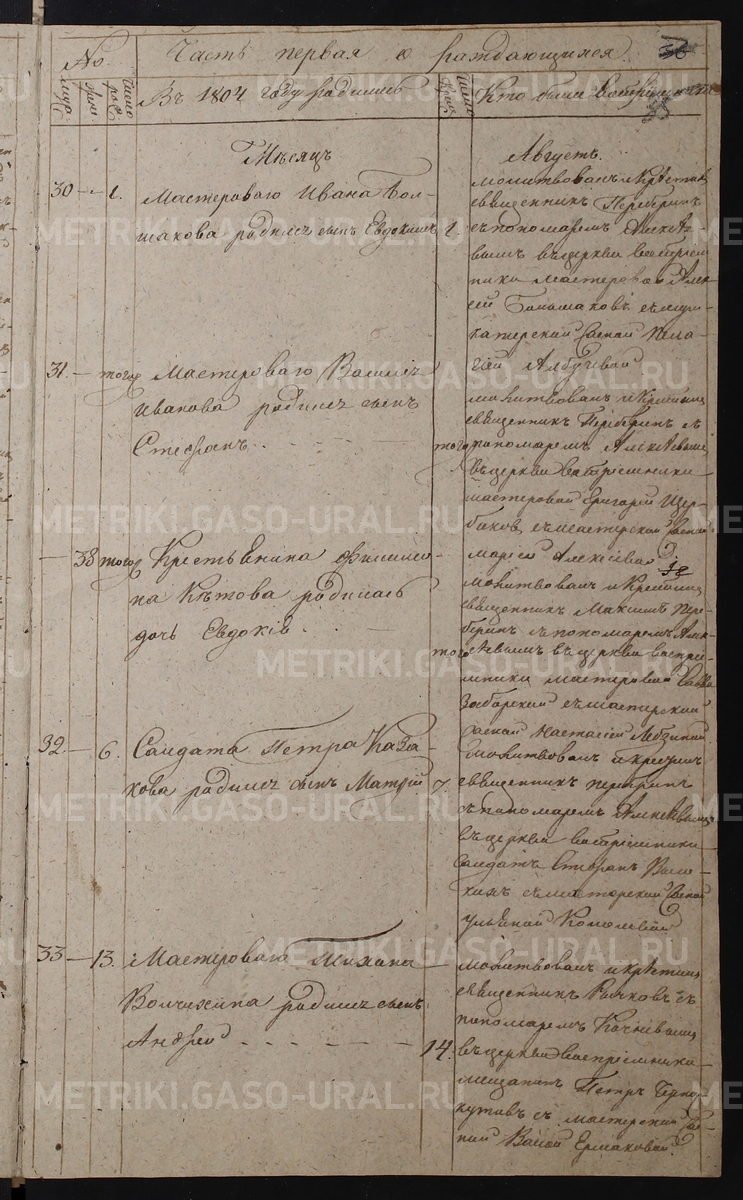 No.
Часть первая о раждающихся.
муж.
жен.
число рож.
Въ 1804 году родились
число крещ.
Кто были восприемники
Мѣсяцъ
Августъ.
30 — 1. Мастероваго Ивана Бол-
шакова родился сынъ Евдокимъ
1.
молитвовалъ и крѣстилъ
священникъ Переберинъ
съ пономаремъ Алексѣе-
вымъ въ церкви восприем-
ники мастеровой Алек-
сей Большаковъ съ
женой Пела-
гией
31 — того Мастероваго Василья
Иванова родился сынъ
Стефанъ
того
молитвовалъ и крестилъ
священникъ Переберинъ съ
пономаремъ Алексѣевымъ
въ церкви восприемники
мастеровой Григорей Щер-
баковъ съ мастерской женой
Марьей Алексеевой
— 38 того Крестьянина Филип-
па Кѣтова родилась
дочь Евдокія
того
38
молитвовалъ и крестилъ
священникъ Максимъ Пере-
беринъ съ пономаремъ Алек-
сѣевымъ въ церкви восприе-
мники мастеровой Савва
Заборской съ мастерской
женой Настасьей
32 — 6. Салдата Петра Каза-
кова родился сынъ Матфей
7.
молитвовалъ и крестилъ
священникъ Переберинъ
съ пономаремъ Алексѣевымъ
въ церкви восприемники
салдатъ Стефанъ
съ мастерской женой
Ульяной
33 — 13. Мастероваго Тихана
Волчихина родился сынъ
Андрей
14.
молитвовалъ и крѣстилъ
священникъ Рычковъ съ
пономаремъ
въ церкви восприемники
мещанинъ Петръ
съ мастерской же-
ной Ермаковой
METRIKI.GASO-URAL.RU